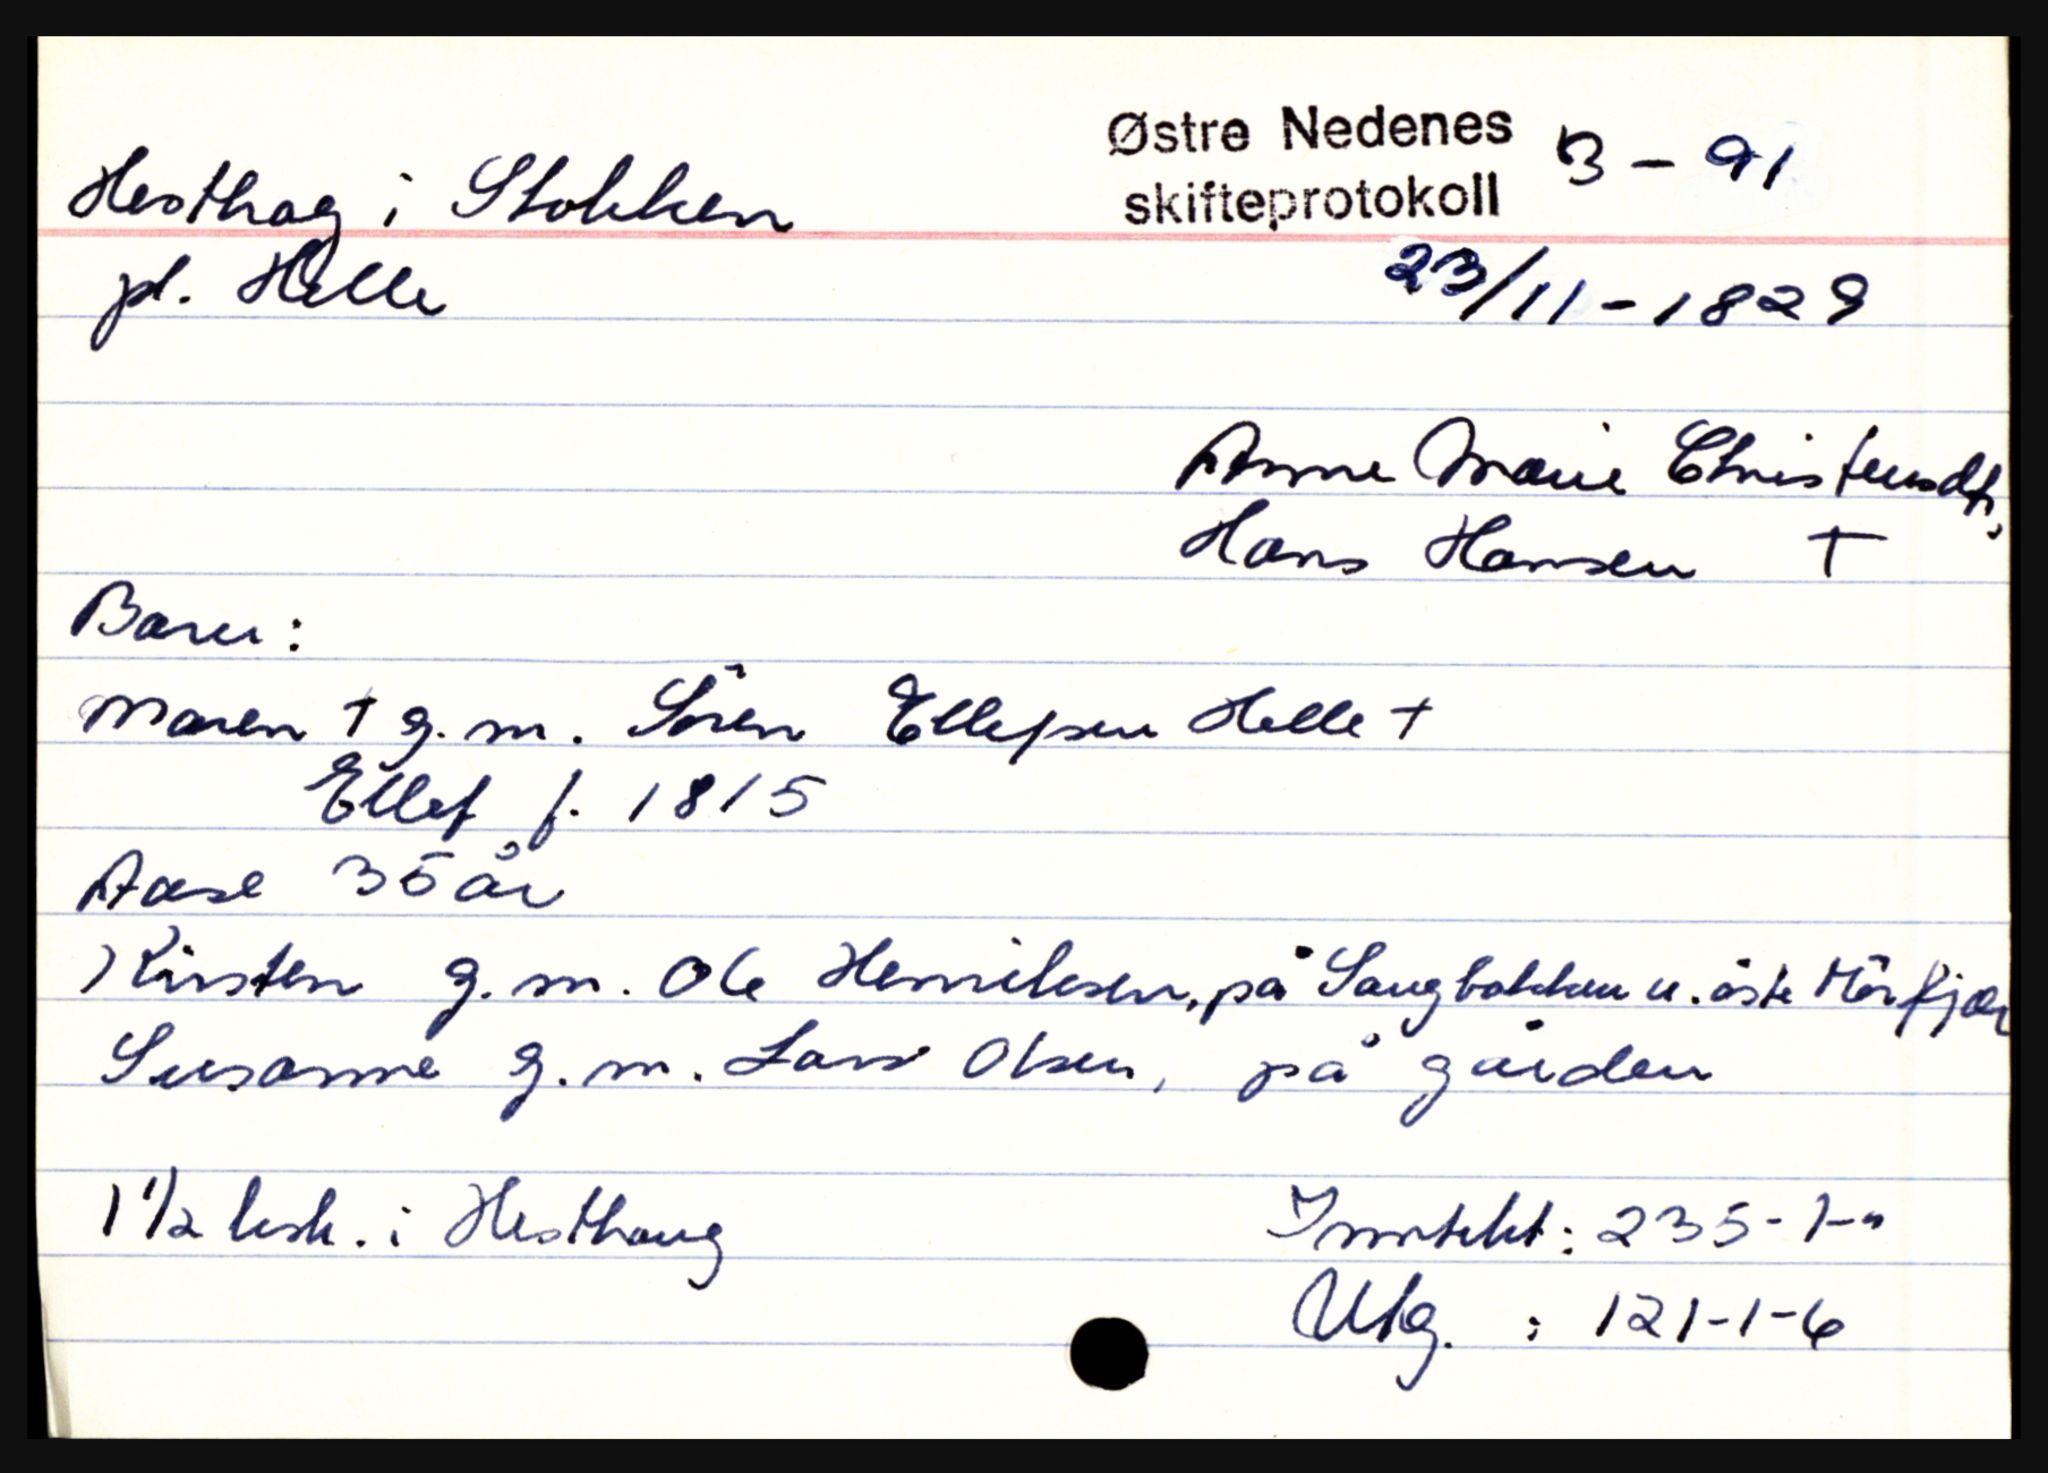 Østre Nedenes
skifteprotokoll
B - 91
Hesthag i Stokken
pl. Helle
23/11 - 1829
Anne Marie Christensdtr.
Hans Hansen †
Barn:
Maren † g.m. Sören Ellefsen Helle †
Ellef f. 1815
Aase 35 år
Kirsten g.m. Ole Henriksen, på Saugbakken u. östre
Susanne g.m. Lars Olsen, på gården
1 1/2 i Hesthaug
Inntekt: 235-1-"
Utg. : 121-1-6